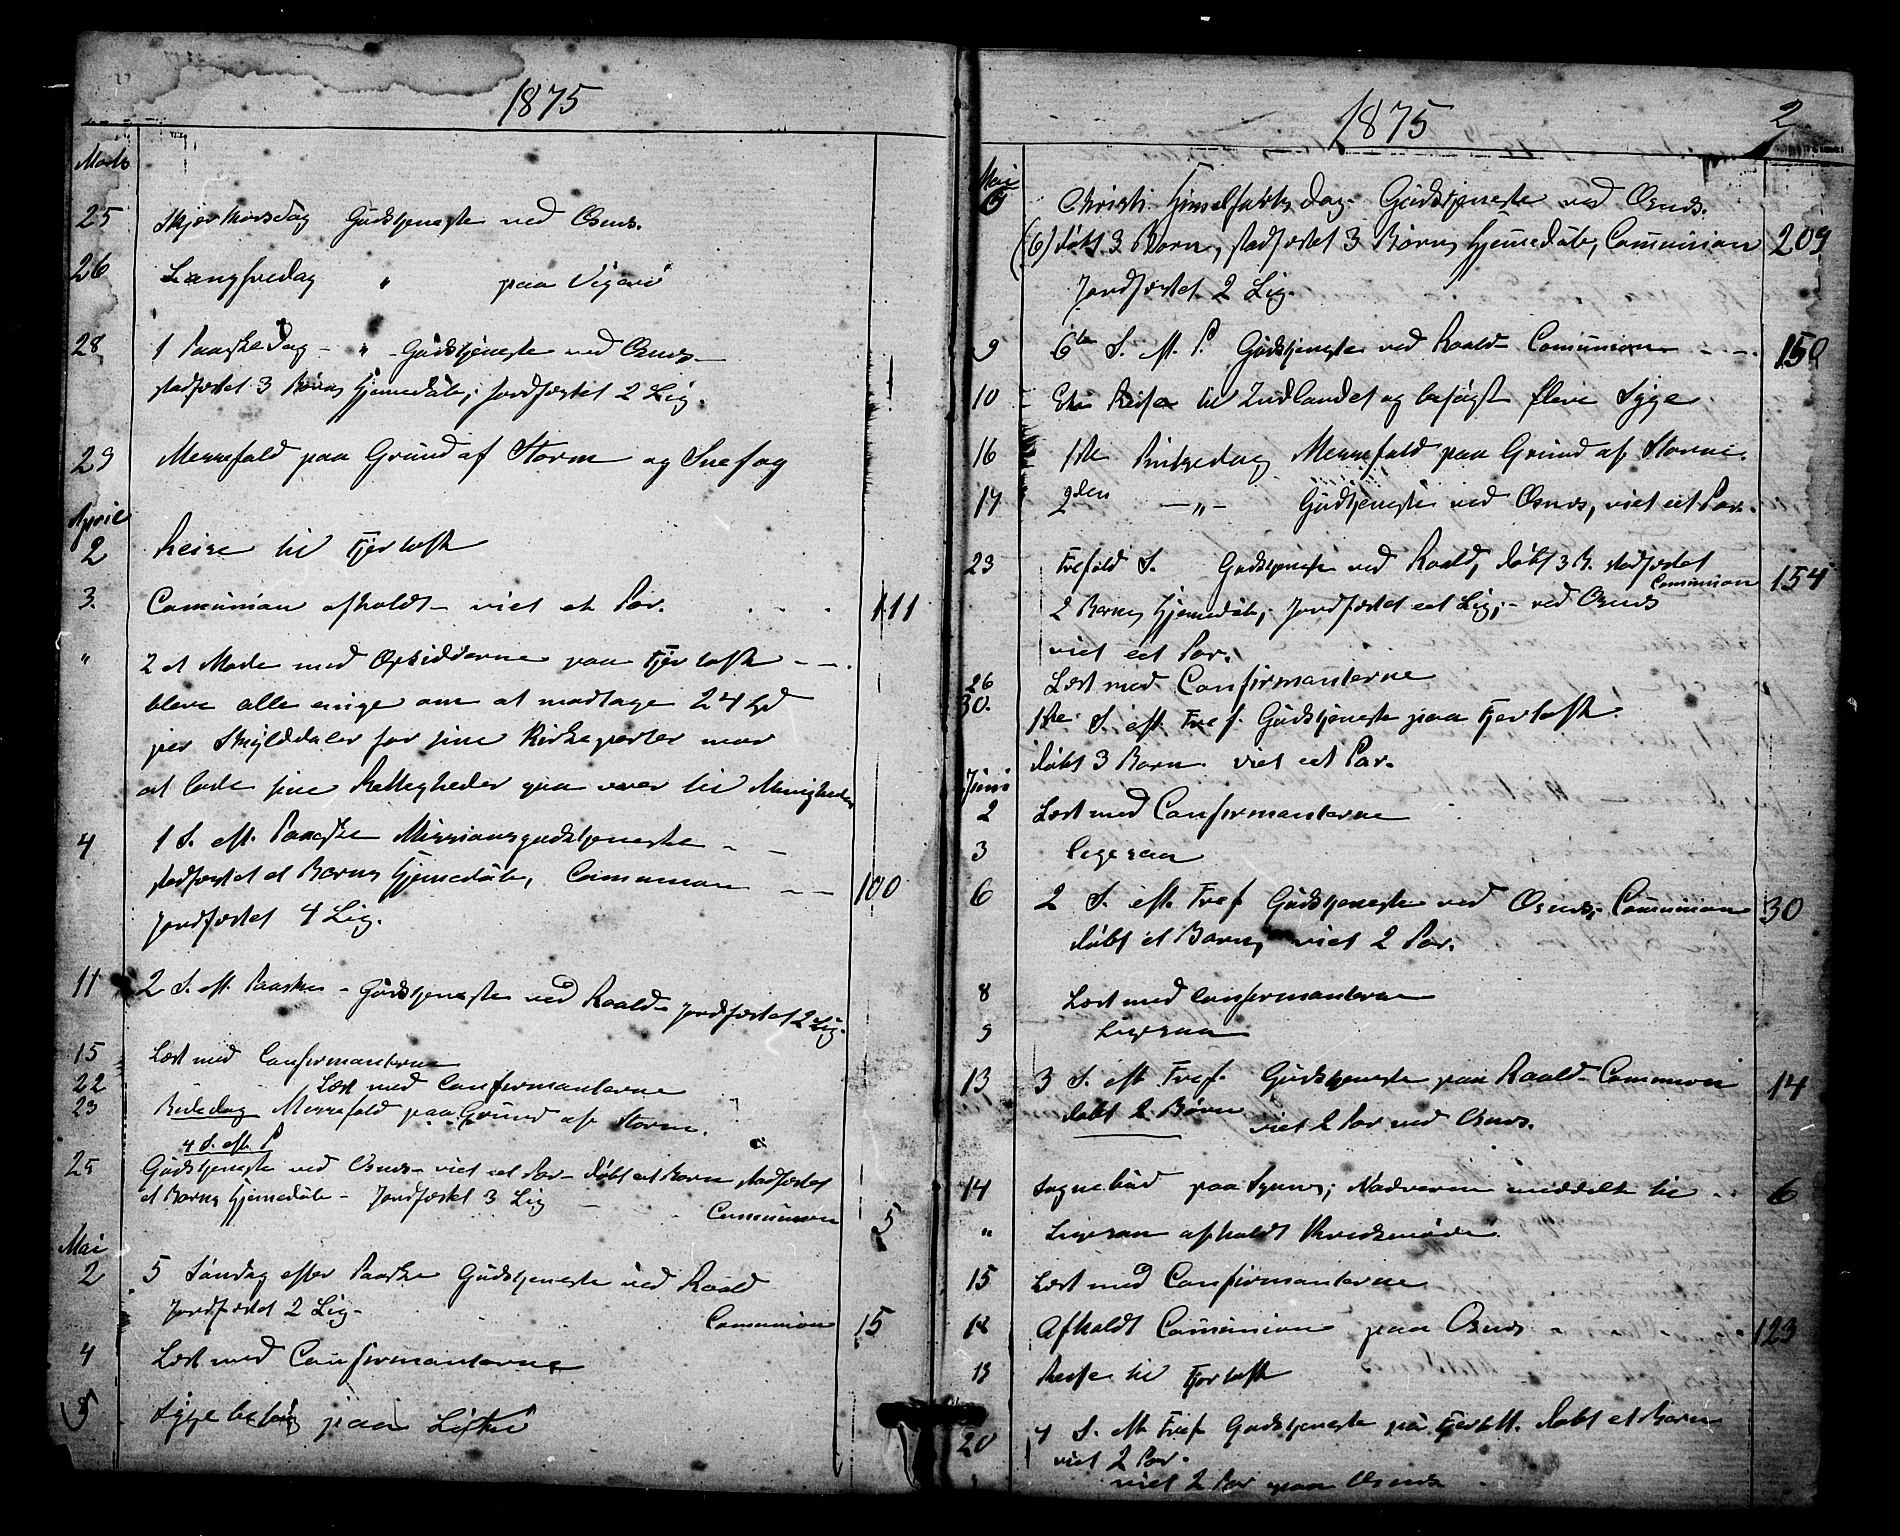 1875
Marts
25 Skjærthorsdag Gudstjeneste ved Osnæs.
26 Langfredag " paa Vigøre
28 1 Paaskedag - " - Gudstjeneste ved Osnæs -
stadfæstet 3 Børns Hjemedåb, jordfæstet 2 Lig.
29 Messefald paa Grund af Storm og Snefog
April
2 Reise til Fjertoft
3. Comunion afholdt - viet et Par. . . . 111
" I et Møde med Opsidderne paa Fjertoft - -
bleve alle enige om at modtage 24 Spd
per Skylddaler for sine Kirkeparter mod
at lade sine Rettigheder gaa over til Menigheden
4 1 S. eft. Paaske Missionsgudstjeneste - -
stadfæstet et Barns Hjemedåb, Comunion - - 100
Jordfæstet 4 Lig.
11 2 S. eft. Paaske - Gudstjeneste ved Roald - jordfæstet 2 Lig.
15 Læst med Confirmanterne
22 Læst med Confirmanterne
23 Bededag Messefald paa Grund af Storm.
4 S. eft. P
25 Gudstjeneste ved Osnæs - viet eet Par - døbt eet Barn stadfæstet
et Barns Hjemedåb - Jordfæstet 3 Lig -
Comunion 5
Mai
2 5 Søndag efter Paaske Gudstjeneste ved Roald
Jordfæstet 2 Lig -
Comunion 15
4 Læst med Confirmanterne
5 Sygebesøg paa
1875 2
Mai
6 Christi Himelfarts Dag - Gudstjeneste ved Osnæs.
(6) døbt 3 Børn, stadfæstet 3 Børns Hjemedåb, Comunion 209
Jordfæstet 2 Lig.
9 6te S. eft. P. Gudstjeneste ved Roald - Comunion - - - 150
10 Reise til Indlandet og besøgt flere Syge
16 1ste Pintsedag Messefald paa Grund af Storm.
17 2den - " - Gudstjeneste ved Osnæs, viet eet Par.
23 Trefold. S. Gudstjeneste ved Roald, døbt 3 B. stadfæstet
Comunion 154
2 Børns Hjemedåb, Jordfæstet eet Lig, - ved Osnæs
viet eet Par.
26 Læst med Confirmanterne
30. 1ste S. eft. Tref. Gudstjeneste paa Fjertoft.
døbt 3 Børn viet eet Par.
Juni
2 Læst med Confirmanterne
3 Ligesaa
6 2 S. eft. Tref Gudstjeneste ved Osnæs, Comunion 30
døbt et Barn, viet 2 Par.
8 Læst med Confirmanterne
9 Ligesaa
13 3 S. eft Tref. Gudstjeneste paa Roald - Comunion 14
døbt 2 Børn viet 2 Par ved Osnæs.
14 Sognebud paa Synæs; Nadveren meddelt til - - 6
" Ligesaa afholdt Kredsmøde
15 Læst med Confirmanterne
18 Afholdt Comunion paa Osnæs - - - 123
19 Reise til Fjortoft
20 4 S. eft Tref Gudstjeneste på Fjertoft. døbt et Barn
viet 2 Par -
viet 2 Par paa Osnæs -